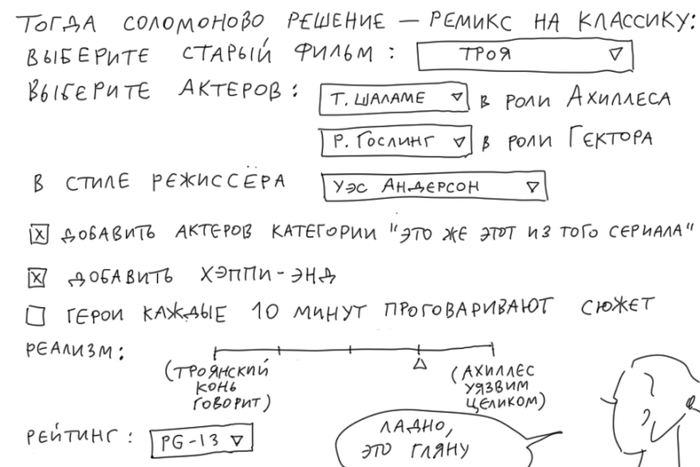 ТОГДА СОЛОМОНОВО РЕШЕНИЕ — РЕМИКС НА КЛАССИКУ:
ВЫБЕРИТЕ СТАРЫЙ ФИЛЬМ: ТРОЯ
ВЫБЕРИТЕ АКТЕРОВ: Т. ШАЛАМЕ В РОЛИ АХИЛЛЕСА
Р. ГОСЛИНГ В РОЛИ ГЕКТОРА
В СТИЛЕ РЕЖИССЁРА УЭС АНДЕРСОН
X ДОБАВИТЬ АКТЕРОВ КАТЕГОРИИ "ЭТО ЖЕ ЭТОТ ИЗ ТОГО СЕРИАЛА"
X ДОБАВИТЬ ХЭППИ-ЭНД
ГЕРОИ КАЖДЫЕ 10 МИНУТ ПРОГОВАРИВАЮТ СЮЖЕТ
РЕАЛИЗМ:
(ТРОЯНСКИЙ
КОНЬ
ГОВОРИТ)
(АХИЛЛЕС
УЯЗВИМ
ЦЕЛИКОМ)
РЕЙТИНГ: PG-13
ЛАДНО,
ЭТО ГЛЯНУ